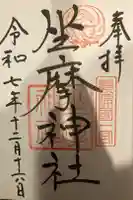 奉拝
坐摩神社
令和七年十二月十六日